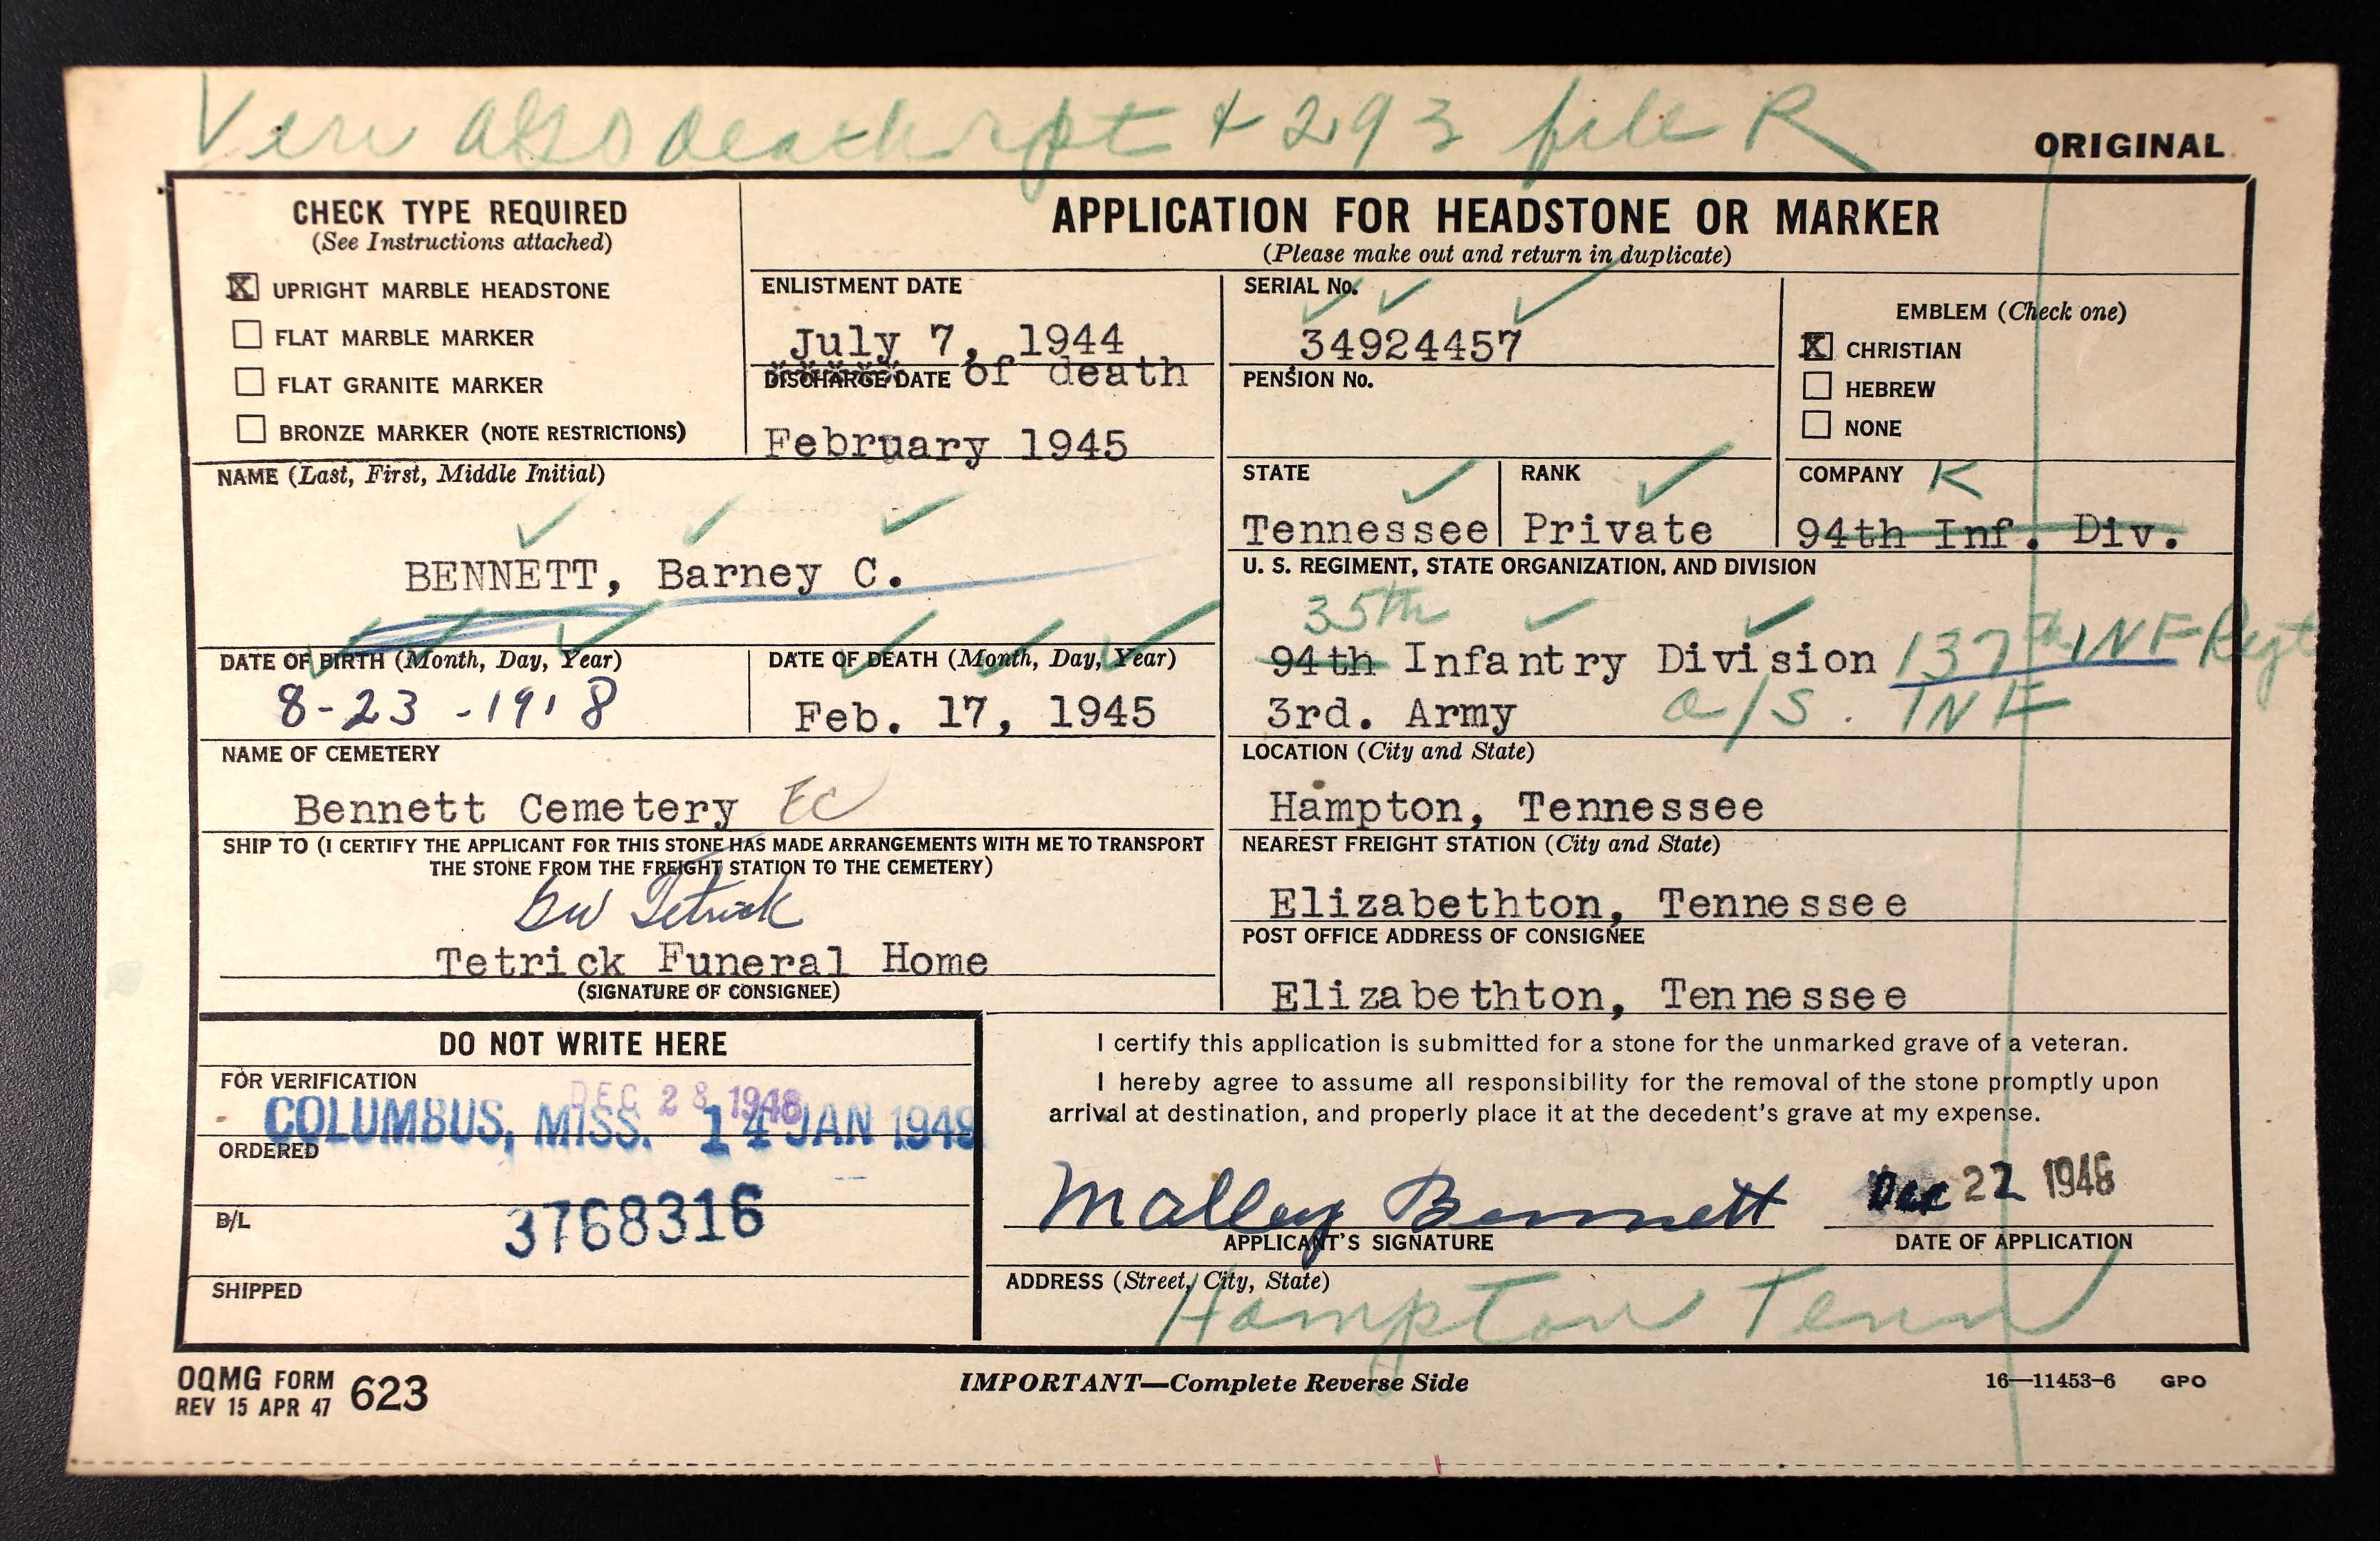 Veri also death rpt + 293 file R
ORIGINAL
CHECK TYPE REQUIRED
(See Instructions attached)
X UPRIGHT MARBLE HEADSTONE
FLAT MARBLE MARKER
FLAT GRANITE MARKER
BRONZE MARKER (NOTE RESTRICTIONS)
APPLICATION FOR HEADSTONE OR MARKER
(Please make out and return in duplicate)
ENLISTMENT DATE
July 7, 1944
DISCHARGE DATE of death
February 1945
SERIAL No.
34924457
PENSION No.
EMBLEM (Check one)
X CHRISTIAN
HEBREW
NONE
NAME (Last, First, Middle Initial)
BENNETT, Barney C.
STATE
Tennessee
RANK
Private
COMPANY K
94th Inf. Div.
U. S. REGIMENT, STATE ORGANIZATION, AND DIVISION
35th
94th Infantry Division 137th INF Regt
3rd. Army a/S. INF
DATE OF BIRTH (Month, Day, Year)
8-23-1918
DATE OF DEATH (Month, Day, Year)
Feb. 17, 1945
NAME OF CEMETERY
Bennett Cemetery EC
LOCATION (City and State)
Hampton, Tennessee
SHIP TO (I CERTIFY THE APPLICANT FOR THIS STONE HAS MADE ARRANGEMENTS WITH ME TO TRANSPORT
THE STONE FROM THE FREIGHT STATION TO THE CEMETERY)
Tetrick
Tetrick Funeral Home
(SIGNATURE OF CONSIGNEE)
NEAREST FREIGHT STATION (City and State)
Elizabethton, Tennessee
POST OFFICE ADDRESS OF CONSIGNEE
Elizabethton, Tennessee
DO NOT WRITE HERE
FOR VERIFICATION
DEC 28 1948
COLUMBUS, MISS. 14 JAN 1949
ORDERED
B/L
3768316
SHIPPED
I certify this application is submitted for a stone for the unmarked grave of a veteran.
I hereby agree to assume all responsibility for the removal of the stone promptly upon
arrival at destination, and properly place it at the decedent's grave at my expense.
Malley Bennett
APPLICANT'S SIGNATURE
Dec 22 1948
DATE OF APPLICATION
ADDRESS (Street, City, State)
Hampton Tenn
OQMG FORM 623
REV 15 APR 47
IMPORTANT—Complete Reverse Side
16—11453-6 GPO